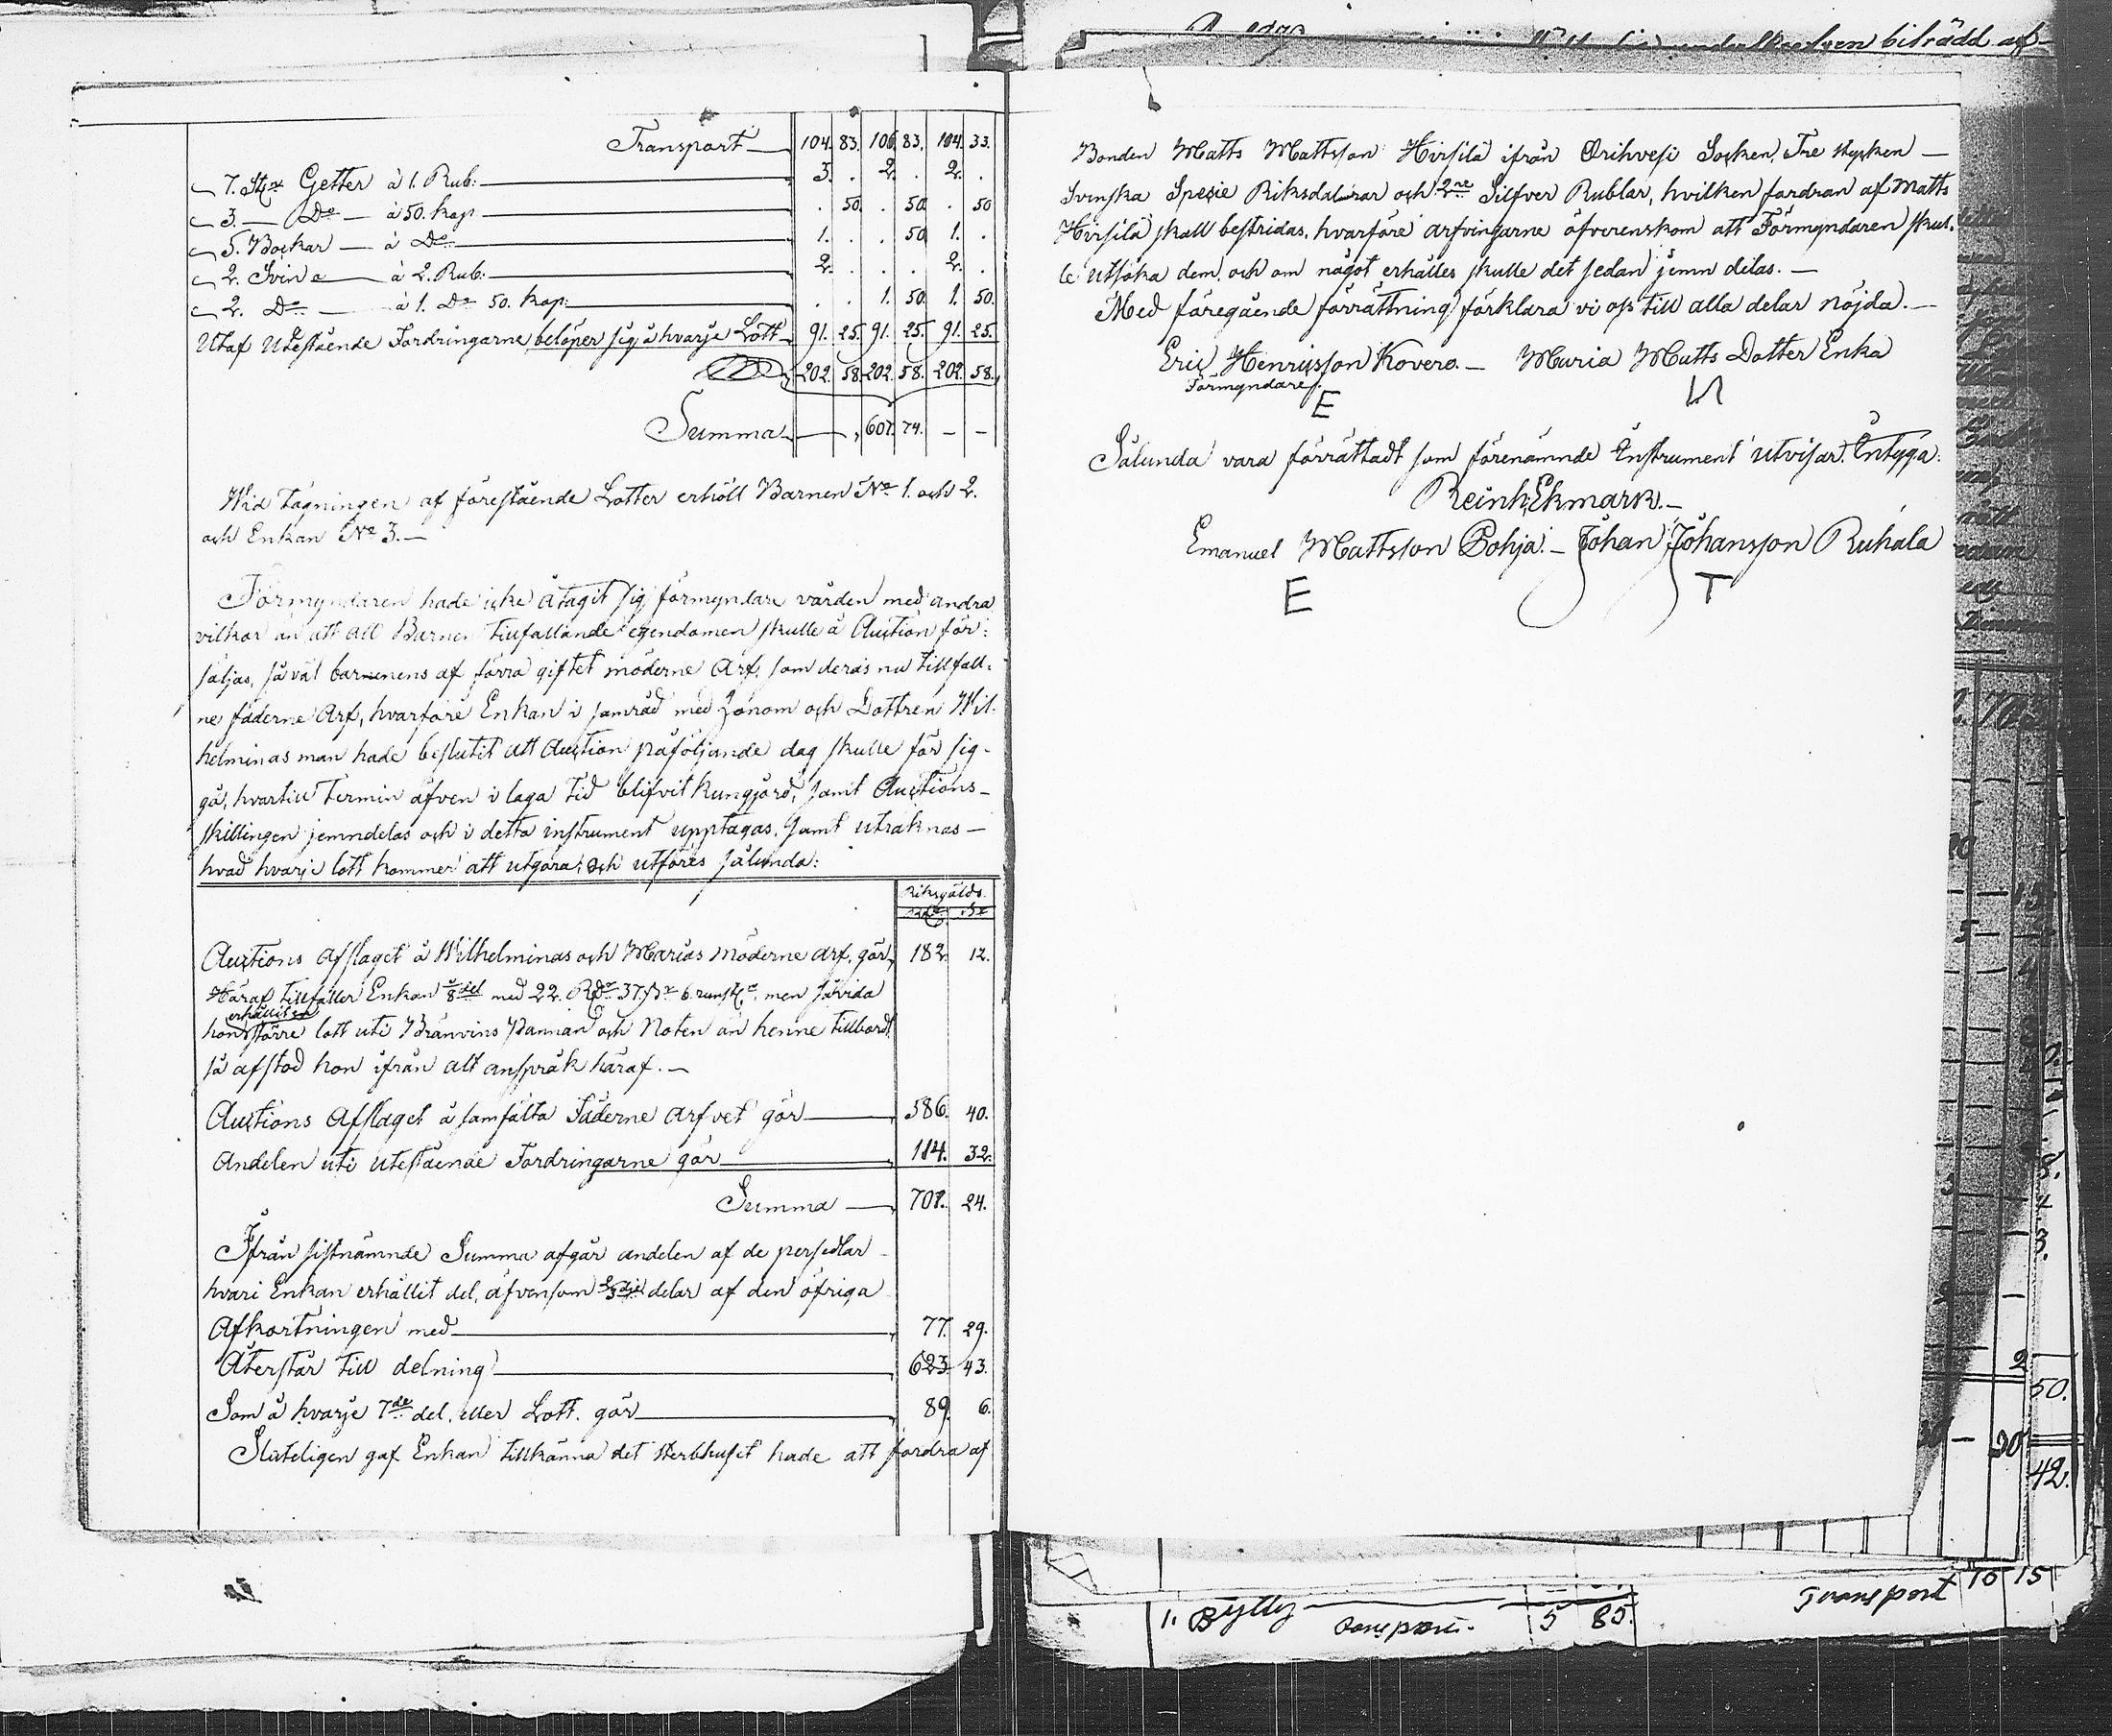 Transport 104. 83. 106. 83. 104. 33.
7. Stx Getter à 1. Rub: 3. . 2. . 2. .
3. Do à 50. kop . 50. . 50. . 50
5. Bockar à Do 1. . . 50 1. .
2. Svin à 2. Rub: 2. . . . 2. .
2. Do à 1. Do 50. kop: . . 1. 50. 1. 50.
Utaf Utestående Fordringarne belöper sig å hvarje Lott 91. 25. 91. 25. 91. 25.
202. 58. 202. 58. 202. 58.
Summa 607. 74. - -
Wid tagningen af förestående Lotter erhöll Barnen No 1. och 2.
och Enkan No 3.
Förmyndaren hade icke åtagit sig förmyndare vården med andra
vilkor än att all Barnen tillfallande egendomen skulle å Auction för:
säljas, så väl barnens af förra giftet möderne Arf, som deras nu tillfall:
ne fäderne Arf, hvarföre Enkan i samråd med honom och Dottren Wil-
helminas man hade beslutit att Auction påföljande dag skulle för sig-
gå, hvartill Termin äfven i laga tid blifvit kungjord, samt Auctions-
skillingen jemndelas och i detta instrument upptagas, samt uträknas
hvad hvarje lott kommer att utgöra, och utföres sålunda:
Riksgälds.
Rdr Sk
Auctions Afslaget å Wilhelminas och Marias Möderne Arf, gör 182. 12.
Häraf tillfaller Enkan 1/8del med 22. Rdr 37. sk 6. runst, men såvida
erhållit en
hon större lott uti Bränvins Pannan och Noten än henne tillbordt
så afstod hon ifrån alt anspråk häraf.
Auctions Afslaget å samfälta Fäderne arfvet gör 586. 40.
Andelen uti utestående Fordringarne gör 114. 32.
Summa 701. 24.
Ifrån sistnämnde Summa afgår andelen af de persedlar
hvari Enkan erhållit del, äfvensom 2/3die delar af den öfriga
Afkortningen med 77. 29.
Återstår till delning 623. 43.
Som å hvarje 7de del, eller Lott, gör 89. 6.
Sluteligen gaf Enkan tillkänna det sterbhuset hade att fordra af
Bonden Matts Mattsson Hirsilä ifrån Orihvesi Socken, Tre stycken
Svenska Spesie Riksdalrar och 2ne Silfver Rublar, hvilken fordran af Matts
Hirsilä skall bestridas, hvarföre arfvingarne öfverenskom att Förmyndaren skul-
le utsöka dem, och om något erhålles skulle det sedan jemn delas.
Med föregående förrättning förklara vi oss till alla delar nöjda.
Eric Henricsson Kovero. Maria Matts Dotter Enka
Förmyndare.
E
Sålunda vara förrättadt som förenämnde Instrument utvisar. Intyga:
Reinh. Ekmark.
Emanuel Mattsson Pohja. Johan Johansson Ruhala
E T
biträdd af
50.
42.
1. Bytty 5 85.
Transport 10 15